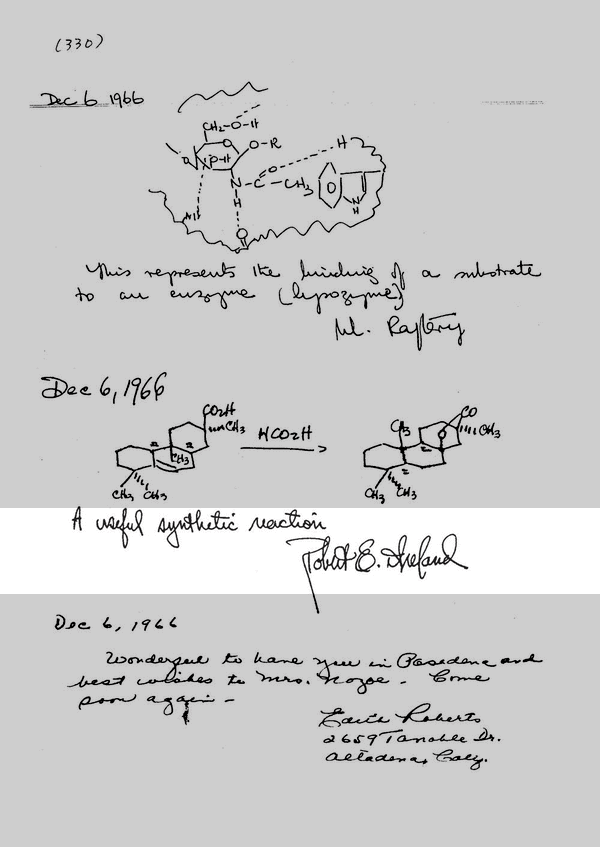 (330)
Dec 6 1966
CH2-O-H
O
O-R
O
O-H
N-C-CH3
O
H
H
N
H
NH
O
This represents the binding of a substrate
to an enzyme (lysozyme)
M. Raftery
Dec 6, 1966
CO2H
CH3
HCO2H
CH3
CH3
CH3
CO
CH3
O
CH3
CH3
CH3
A useful synthetic reaction
Robert E. Ireland
Dec 6, 1966
Wonderful to have you in Pasadena and
best wishes to Mrs. Nozoe. Come
soon again -
Edith Roberts
2659 Tanoble Dr.
Altadena, Calif.